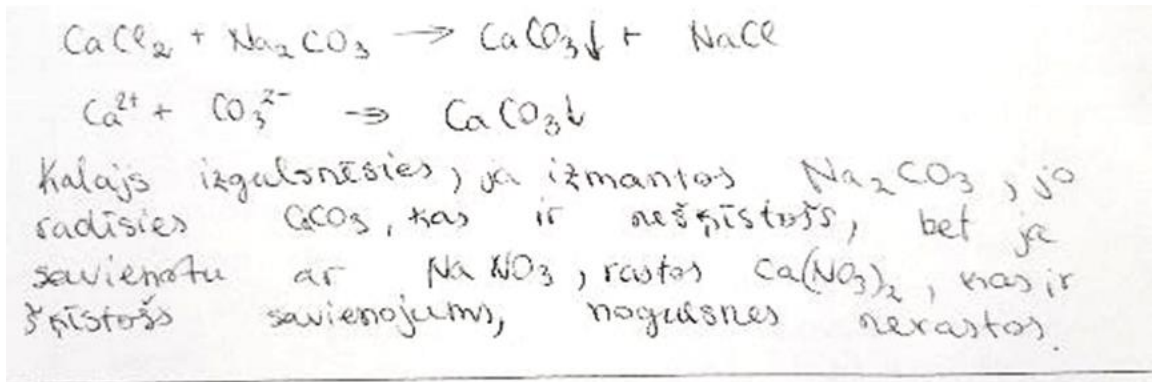 CaCl₂ + Na₂CO₃ → CaCO₃↓ + NaCl
Ca²⁺ + CO₃²⁻ ⇒ CaCO₃↓
Kalcijs izgulsnēsies, ja izmantos Na₂CO₃, jo
radīsies CaCO₃, kas ir nešķīstošs, bet ja
savienotu ar NaNO₃, rastos Ca(NO₃)₂, kas ir
šķīstošs savienojums, nogulsnes nerastos.